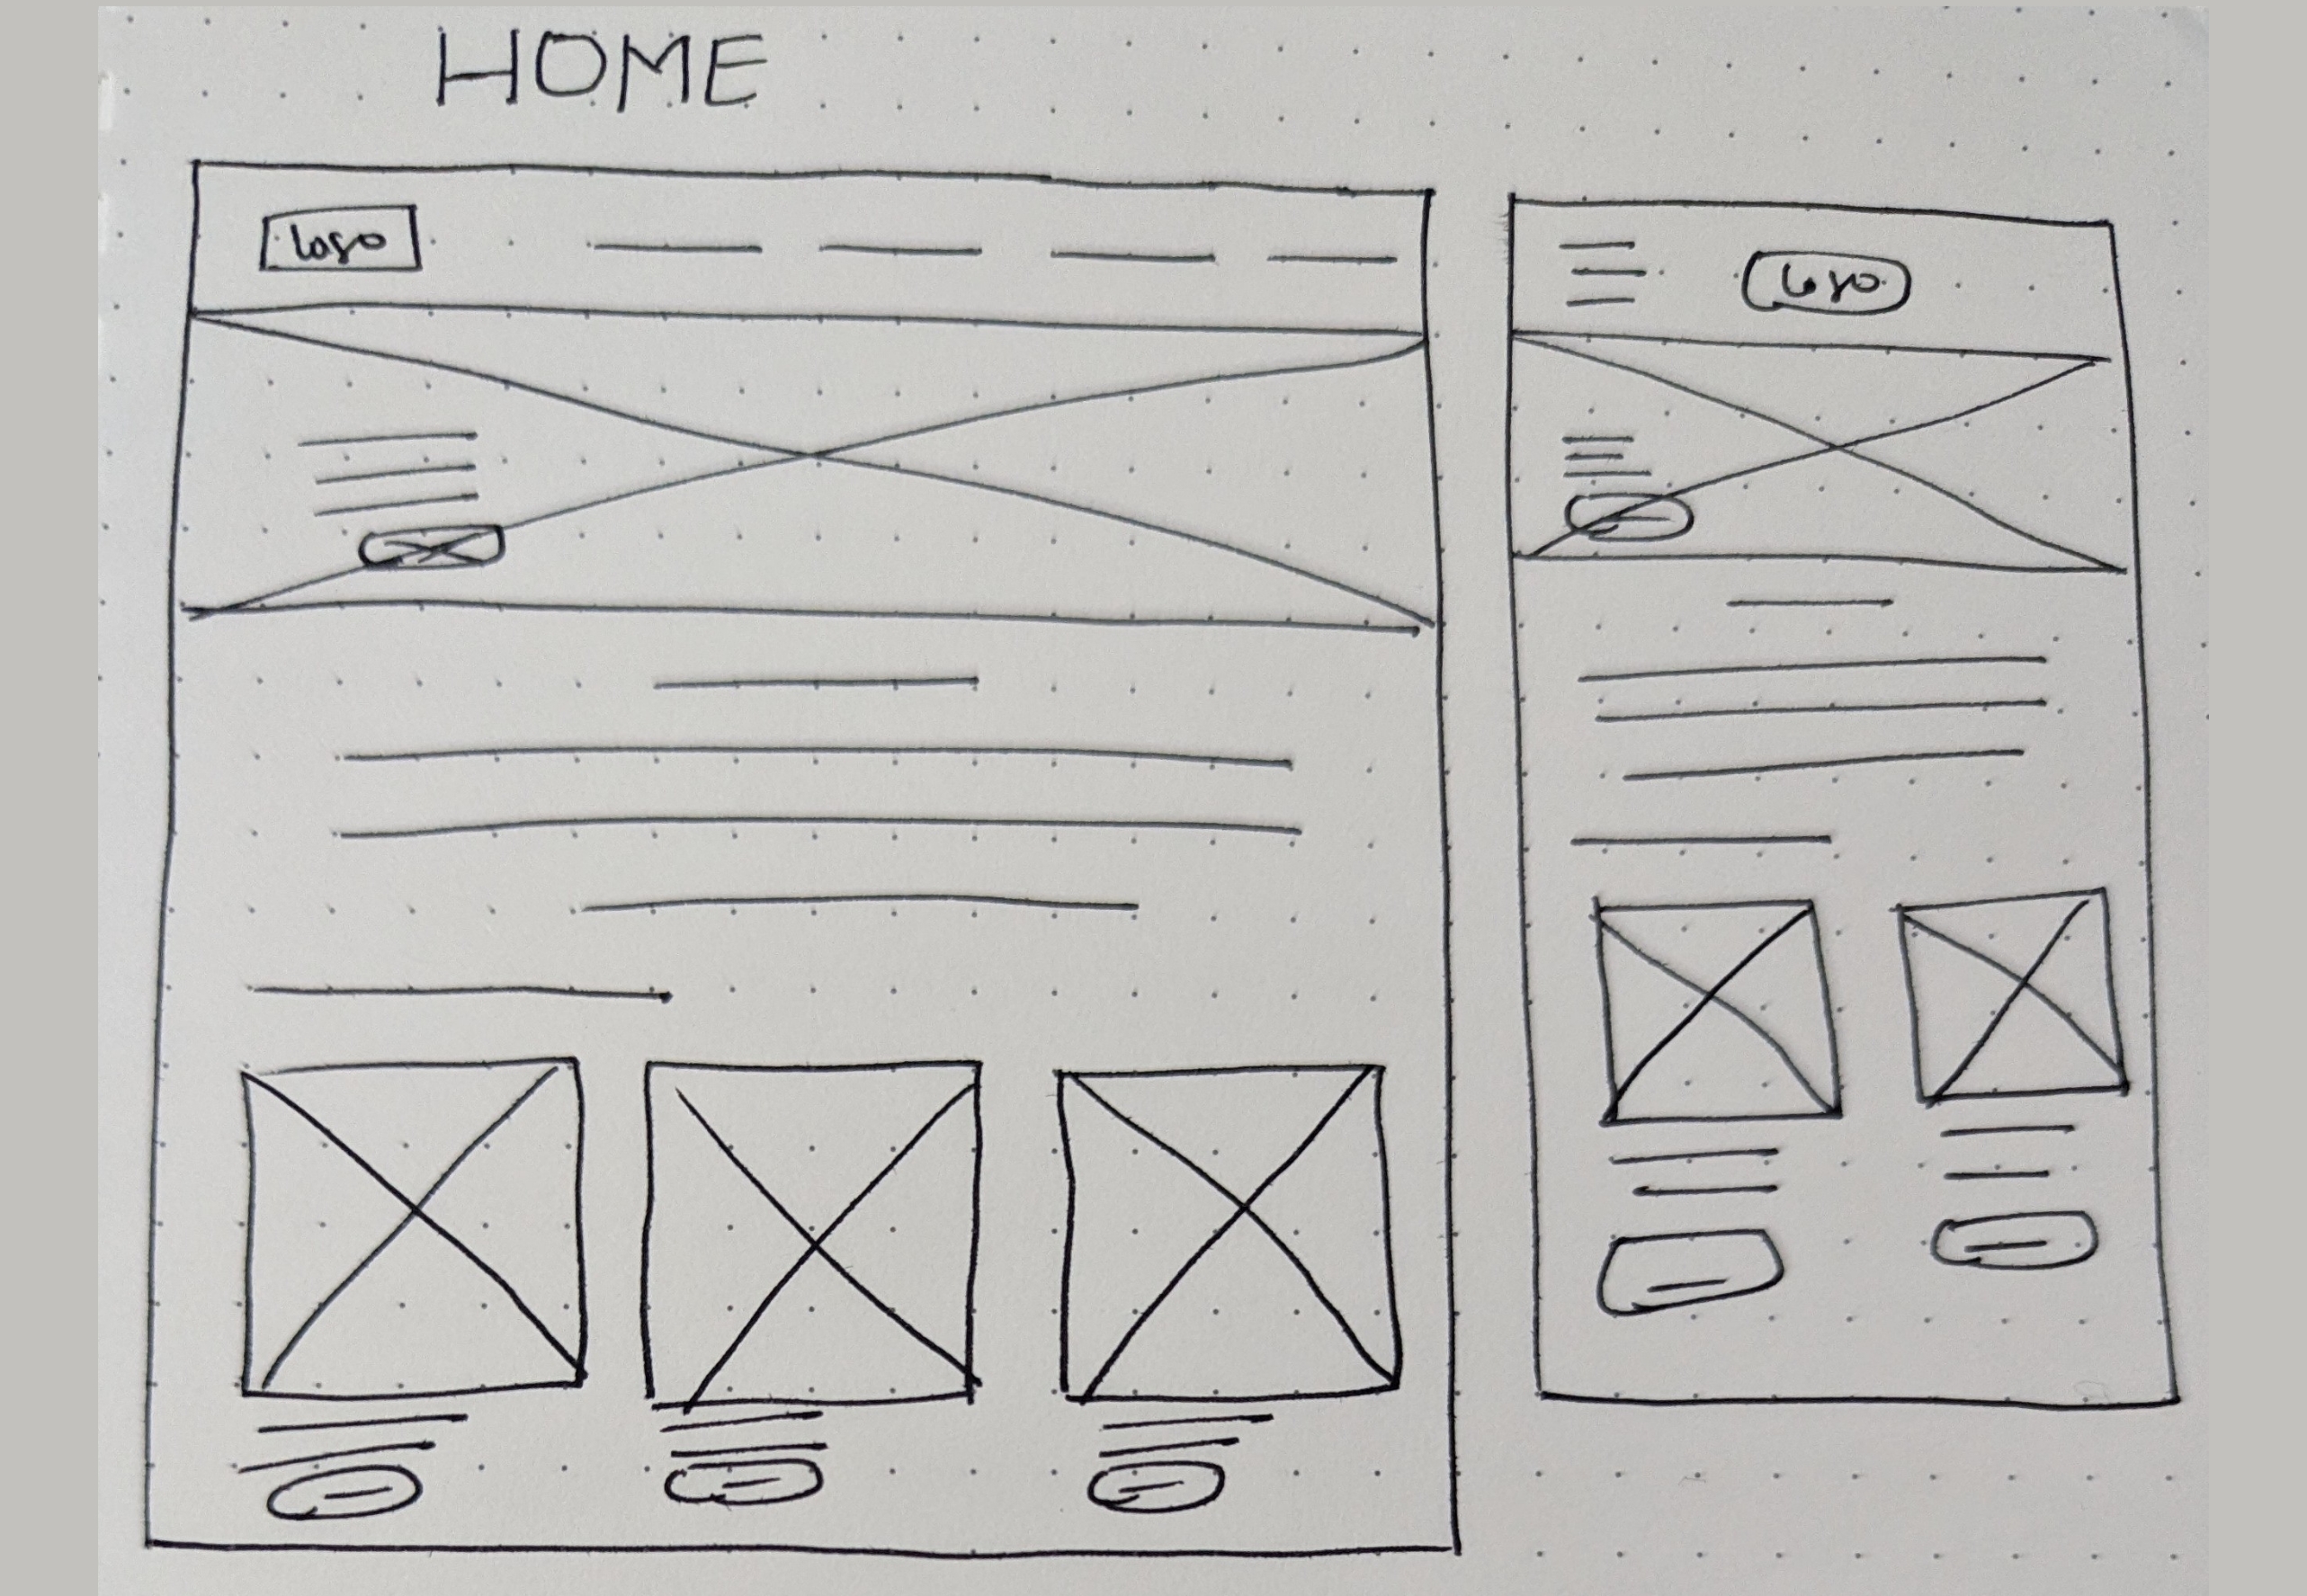 HOME
logo
logo